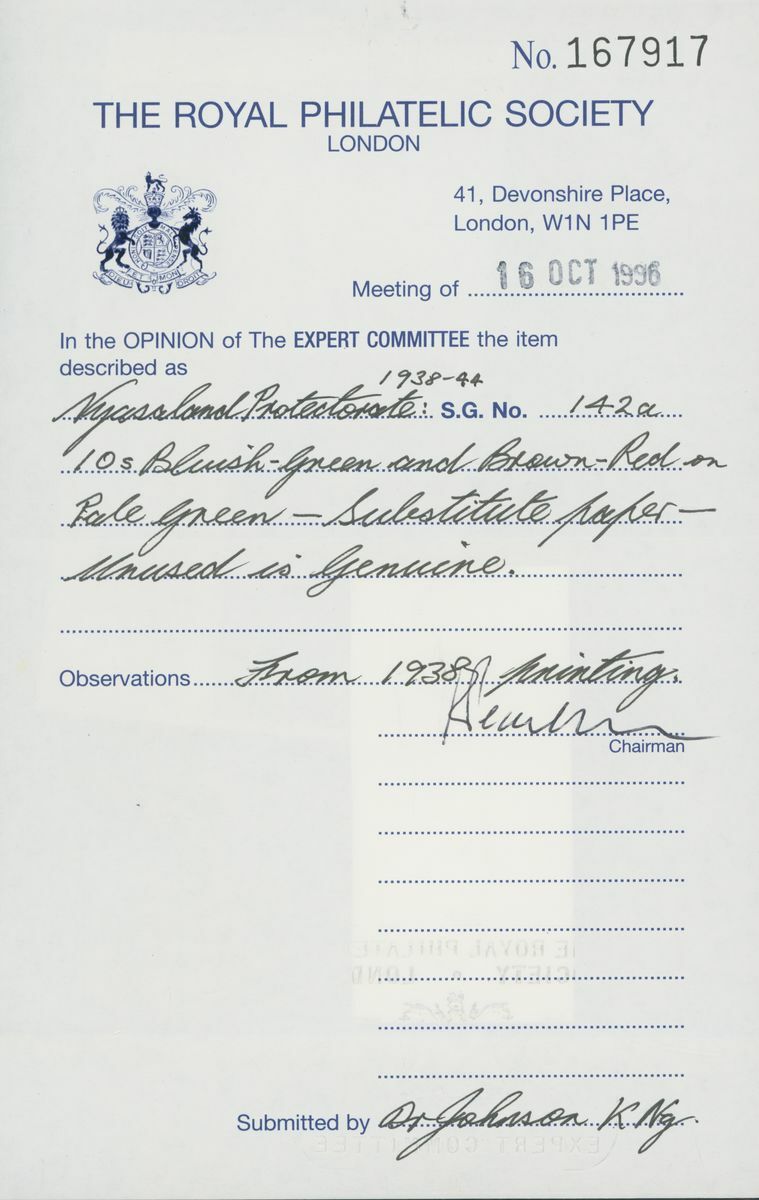 No. 167917
THE ROYAL PHILATELIC SOCIETY
LONDON
41, Devonshire Place,
London, W1N 1PE
Meeting of 16 OCT 1996
In the OPINION of The EXPERT COMMITTEE the item
described as
1938-44
Nyasaland Protectorate: S.G. No. 142a
10s Bluish-Green and Brown-Red on
Pale Green – Substitute paper –
Unused is Genuine.
Observations From 1938 printing.
Chairman
Submitted by Dr Johnson K Ng.